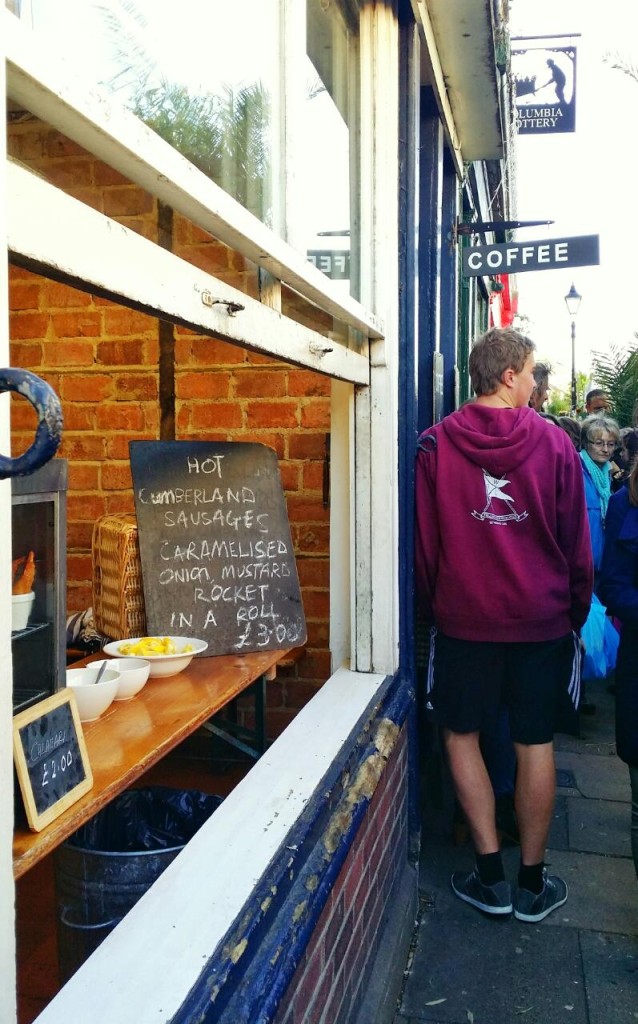 COLUMBIA
POTTERY
COFFEE
HOT
CUMBERLAND
SAUSAGES
CARAMELISED
ONION, MUSTARD
ROCKET
IN A ROLL
£3.00
£2.00